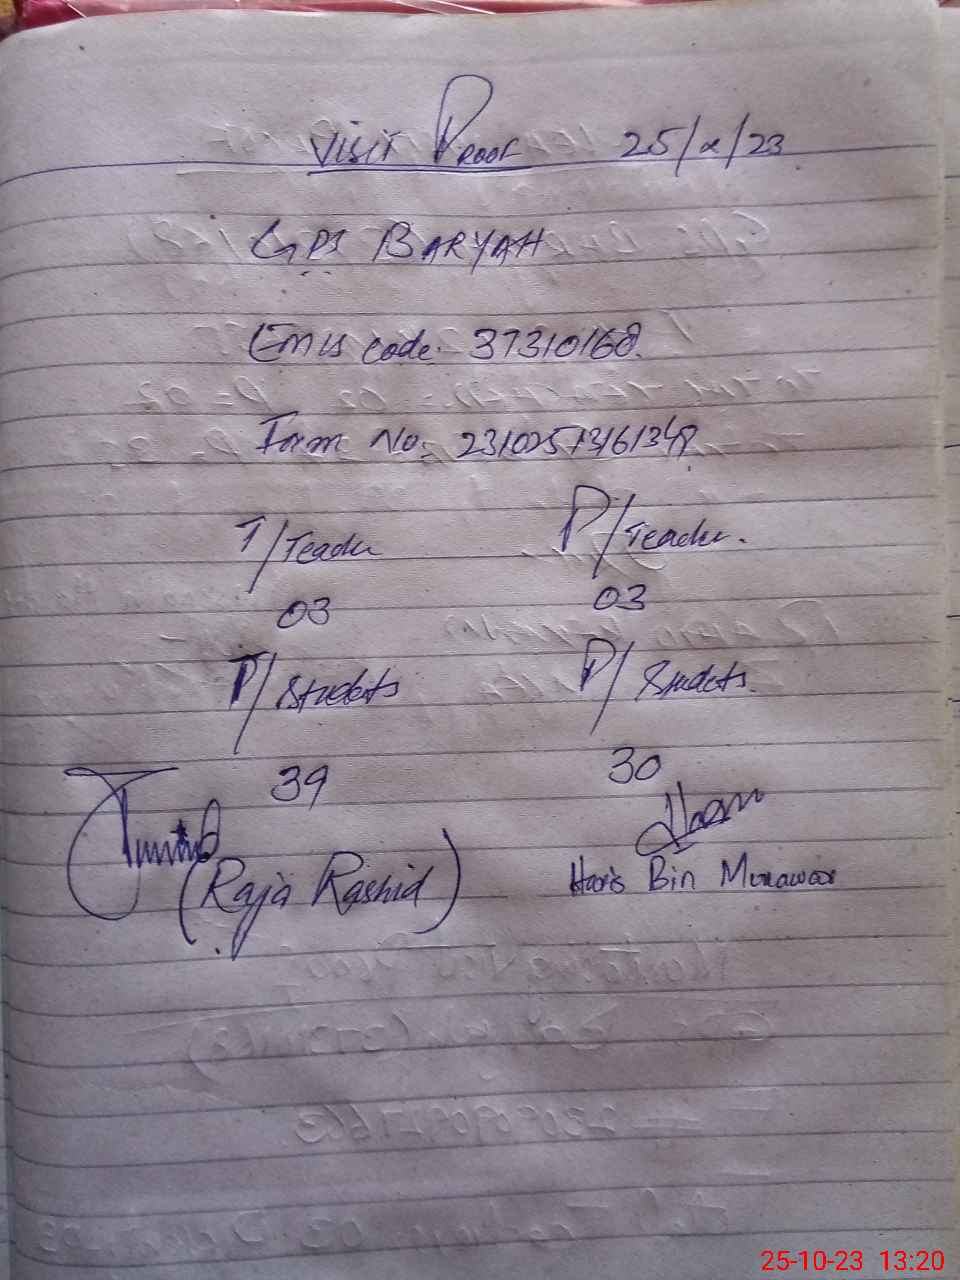 Visit Proof 25/x/23
GPS BARYAH
Emis code: 37310168.
Form No: 23102513161348
T/Teacher P/Teacher.
03 03
T/Students P/Students.
39 30
(Raja Rashid) Haris Bin Munawar
25-10-23 13:20